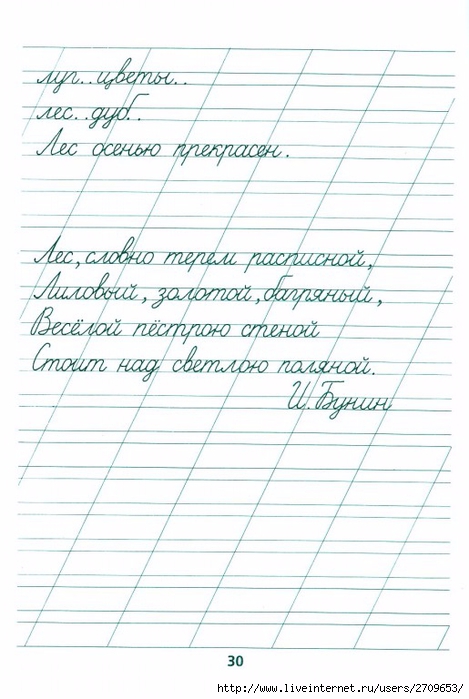 луг..цветы..
лес..дуб..
Лес осенью прекрасен.
Лес, словно терем расписной,
Лиловый, золотой, багряный,
Весёлой пёстрою стеной
Стоит над светлою поляной.
И. Бунин
30
http://www.liveinternet.ru/users/2709653/